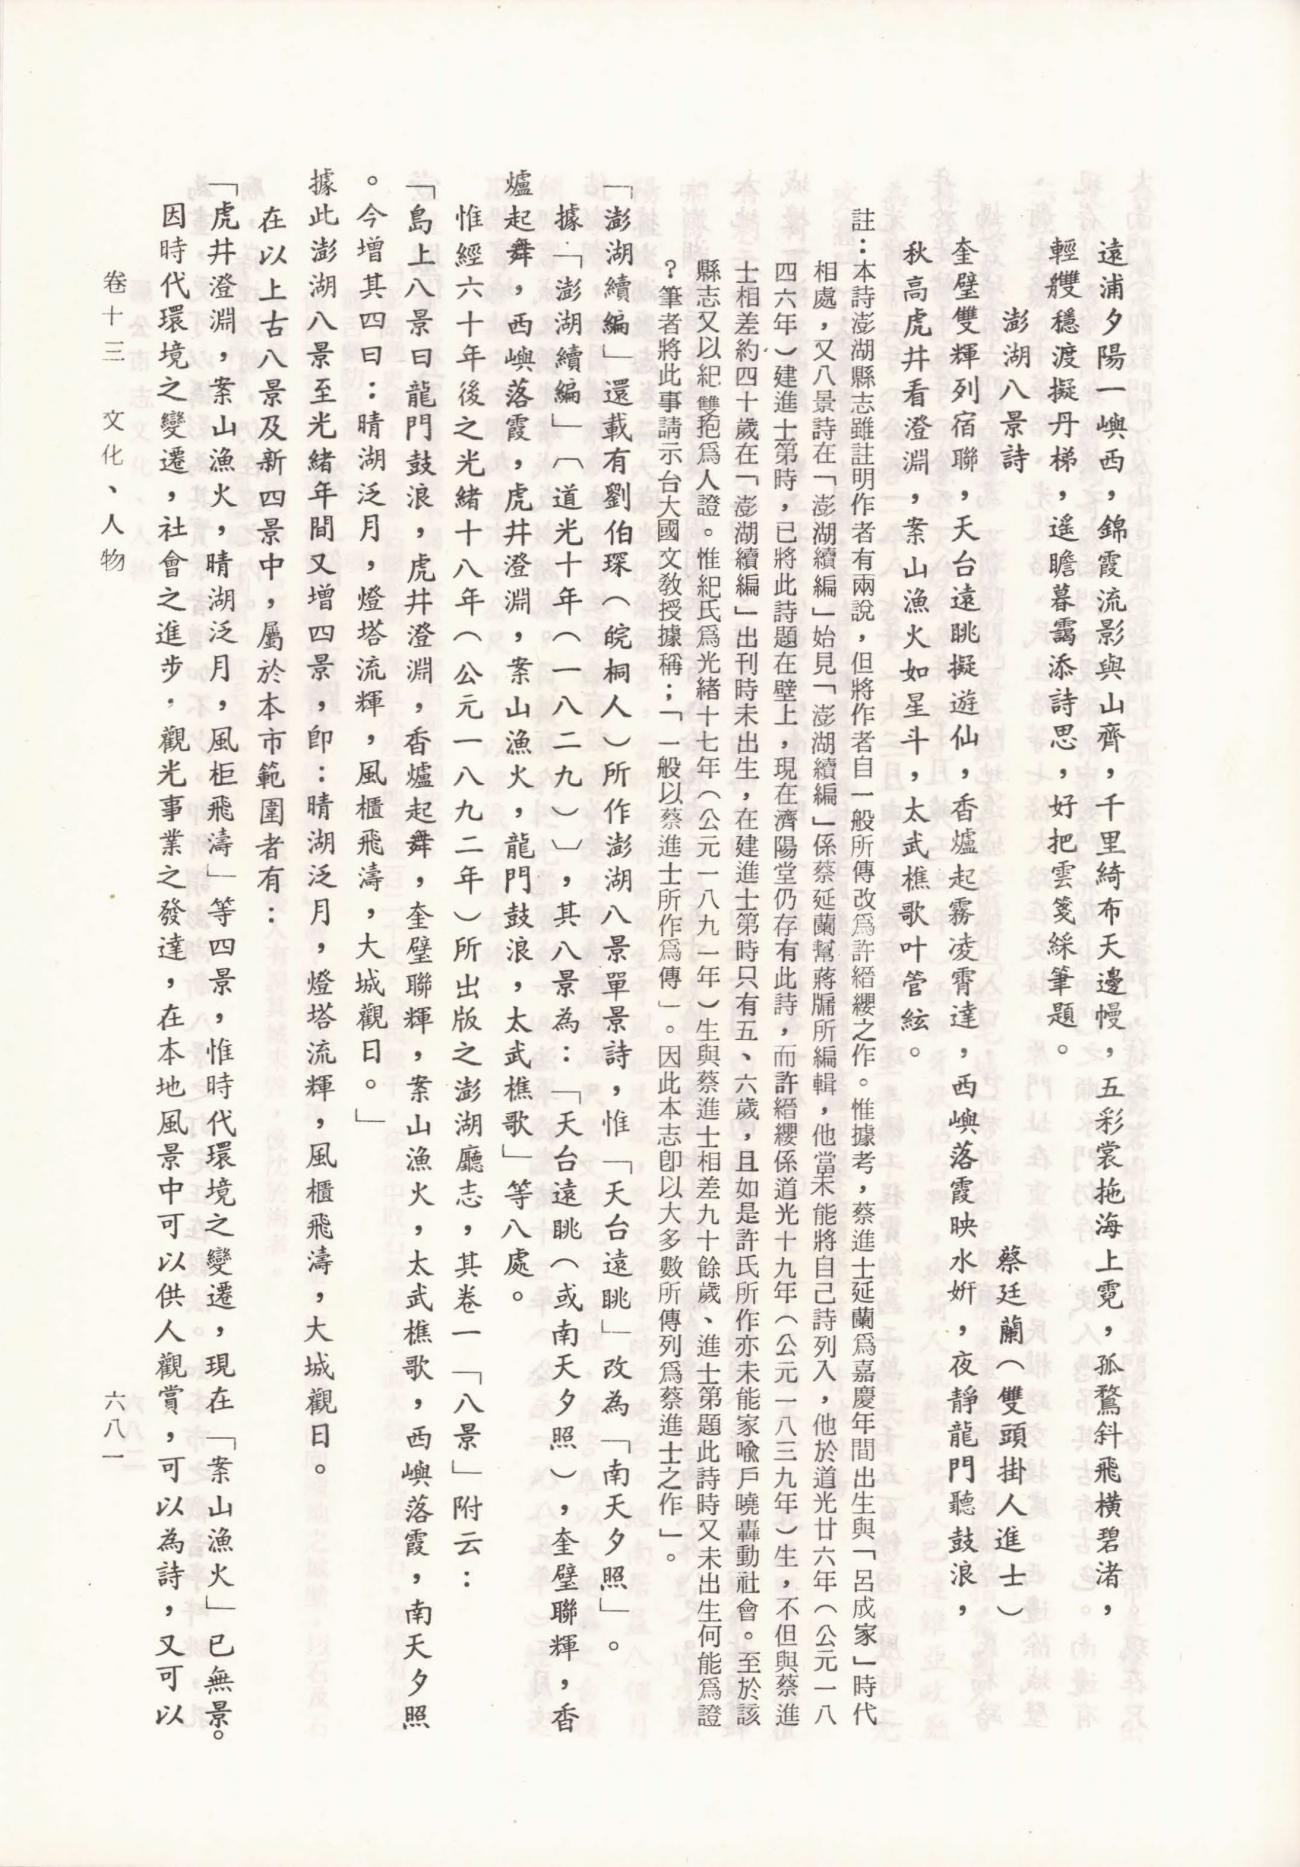 遠浦夕陽一嶼西，錦霞流影與山齊，千里綺布天邊幔，五彩裳拖海上霓，孤鶩斜飛橫碧渚，
輕艭穩渡擬丹梯，遙瞻暮靄添詩思，好把雲箋綵筆題。
澎湖八景詩　蔡廷蘭（雙頭掛人進士）
奎璧雙輝列宿聯，天台遠眺擬遊仙，香爐起霧凌霄達，西嶼落霞映水妍，夜靜龍門聽鼓浪，
秋高虎井看澄淵，案山漁火如星斗，太武樵歌叶管絃。
註：本詩澎湖縣志雖註明作者有兩說，但將作者自一般所傳改爲許縉纓之作。惟據考，蔡進士延蘭爲嘉慶年間出生與「呂成家」時代
相處，又八景詩在「澎湖續編」始見「澎湖續編」係蔡延蘭幫蔣牖所編輯，他當未能將自己詩列入，他於道光廿六年（公元一八
四六年）建進士第時，已將此詩題在壁上，現在濟陽堂仍存有此詩，而許縉纓係道光十九年（公元一八三九年）生，不但與蔡進
士相差約四十歲在「澎湖續編」出刊時未出生，在建進士第時只有五、六歲，且如是許氏所作亦未能家喩戶曉轟動社會。至於該
縣志又以紀雙抱爲人證。惟紀氏爲光緒十七年（公元一八九一年）生與蔡進士相差九十餘歲、進士第題此詩時又未出生何能爲證
？筆者將此事請示台大國文教授據稱：「一般以蔡進士所作爲傳」。因此本志卽以大多數所傳列爲蔡進士之作」。
「澎湖續編」還載有劉伯琛（皖桐人）所作澎湖八景單景詩，惟「天台遠眺」改為「南天夕照」。
據「澎湖續編」〔道光十年（一八二九）〕，其八景為：「天台遠眺（或南天夕照），奎璧聯輝，香
爐起舞，西嶼落霞，虎井澄淵，案山漁火，龍門鼓浪，太武樵歌」等八處。
惟經六十年後之光緒十八年（公元一八九二年）所出版之澎湖廳志，其卷一「八景」附云：
「島上八景曰龍門鼓浪，虎井澄淵，香爐起舞，奎璧聯輝，案山漁火，太武樵歌，西嶼落霞，南天夕照
。今增其四曰：晴湖泛月，燈塔流輝，風櫃飛濤，大城觀日。」
據此澎湖八景至光緒年間又增四景，卽：晴湖泛月，燈塔流輝，風櫃飛濤，大城觀日。
在以上古八景及新四景中，屬於本市範圍者有：
「虎井澄淵，案山漁火，晴湖泛月，風柜飛濤」等四景，惟時代環境之變遷，現在「案山漁火」已無景。
因時代環境之變遷，社會之進步，觀光事業之發達，在本地風景中可以供人觀賞，可以為詩，又可以
卷十三　文化、人物
六八一